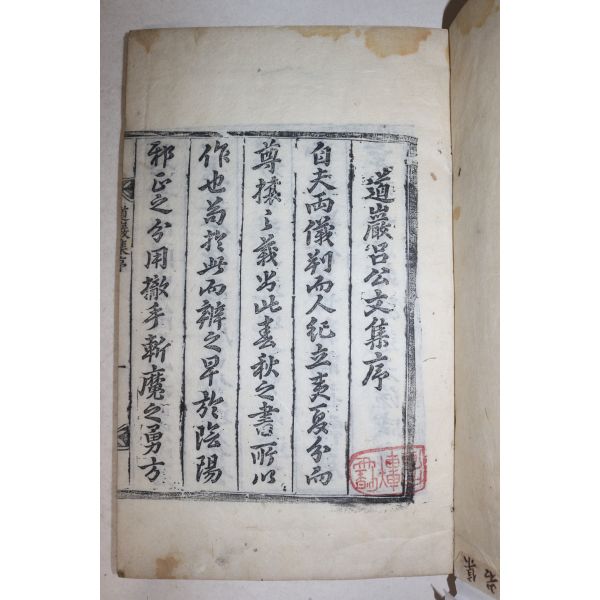 道巖呂公文集序
自夫兩儀判而人紀立夷夏分而
尊攘之義出此春秋之書所以
作也苟於此而辨之早於陰陽
邪正之分用撤手斬魔之勇方
道巖集序